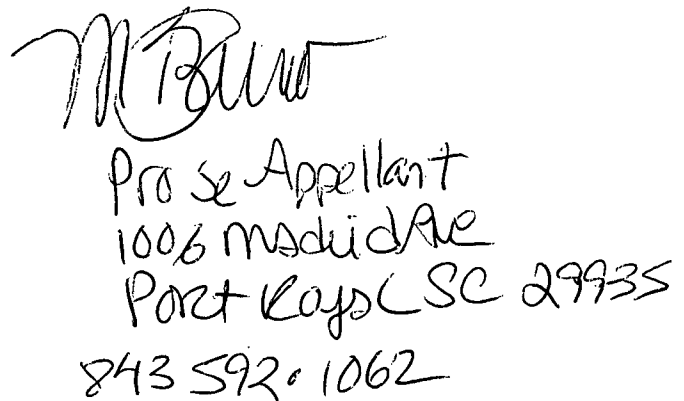 Pro Se Appellant
1006 Madrid Ave
Port Royal SC 29935
843 592.1062